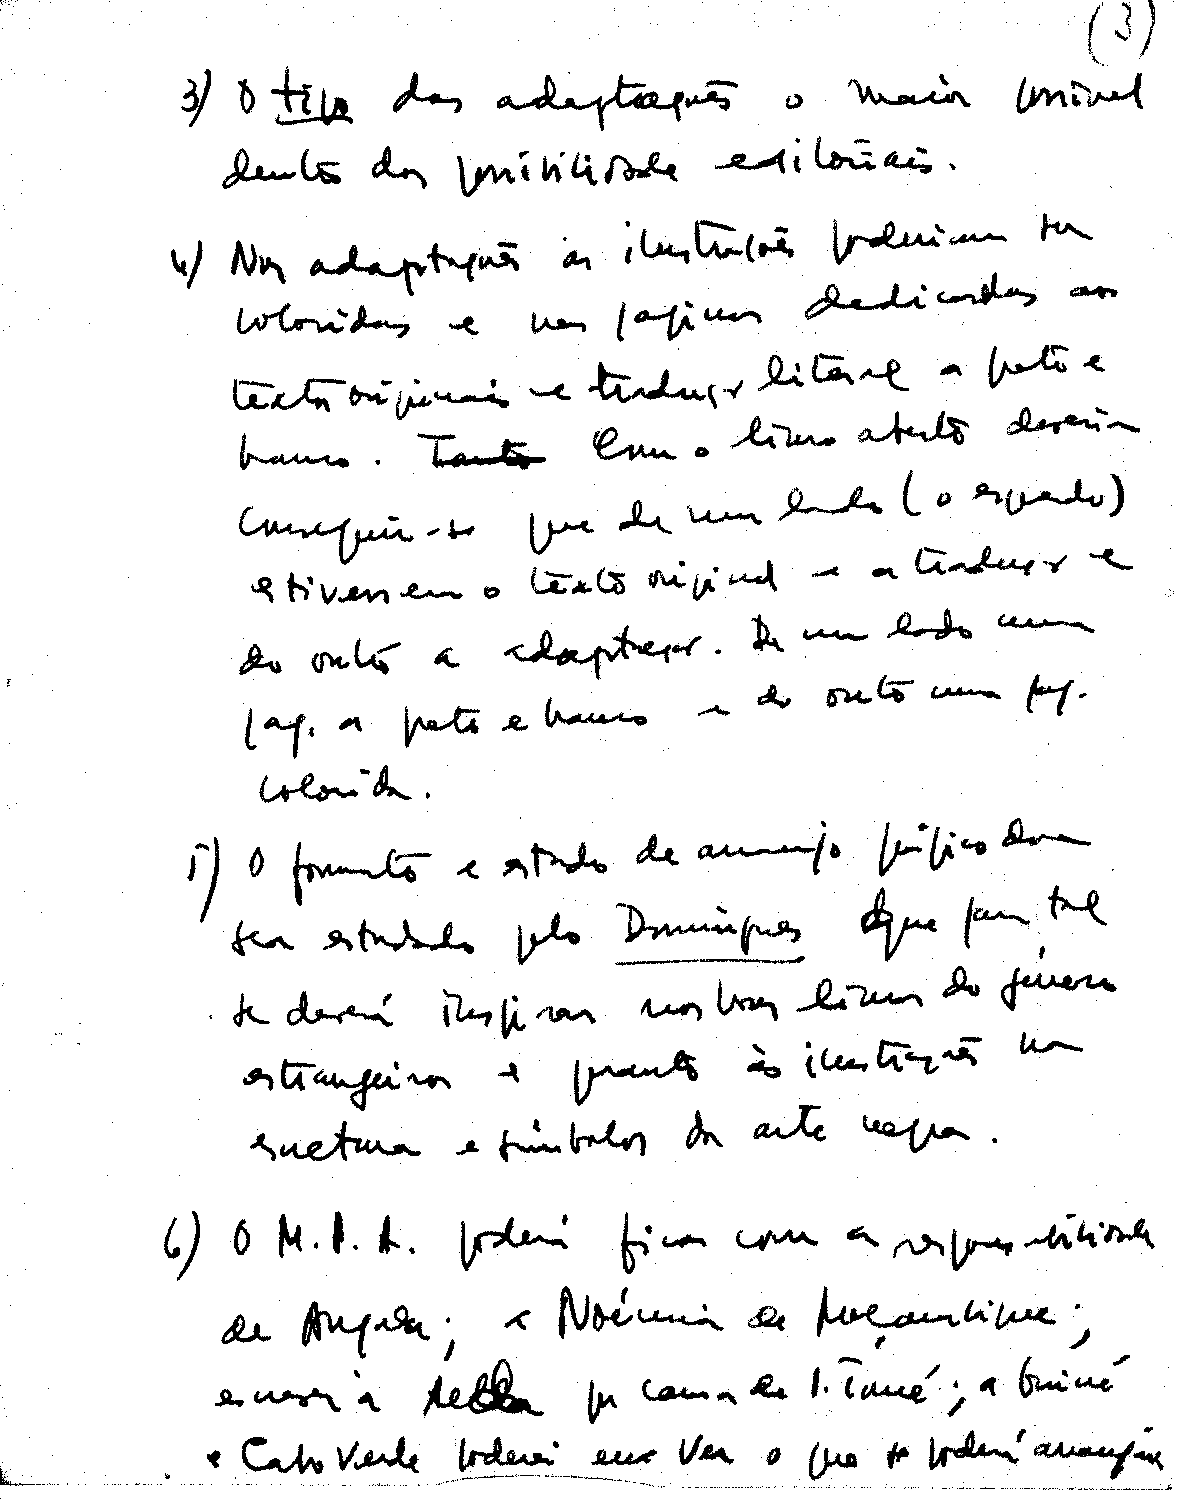 (3)
3) O tipo das adaptações o maior possivel
dentro das possibilidade editoriais.
4) Nas adaptações as ilustrações poderiam ser
coloridas e nas paginas dedicadas aos
textos originais e tradução literal a preto e
branco. Tanto Com o livro aberto deveria
conseguir-se que de um lado (o esquerdo)
estivessem o texto original e a tradução e
do outro a adaptação. De um lado uma
pag. a preto e branco e do outro uma pag.
colorida.
5) O formato e estudo de arranjo gráfico deve
ser estudado pelo Domingues que para tal
se deverá inspirar nos bons livros do género
estrangeiros e quanto às ilustrações na
escultura e simbolos da arte negra.
6) O M.P.A. poderá ficar com a responsabilidade
de Angola; a Noémia de Moçambique;
escrevi à por causa de S. Tomé; a Guiné
e Cabo Verde poderei eu ver o que se poderá arranjar